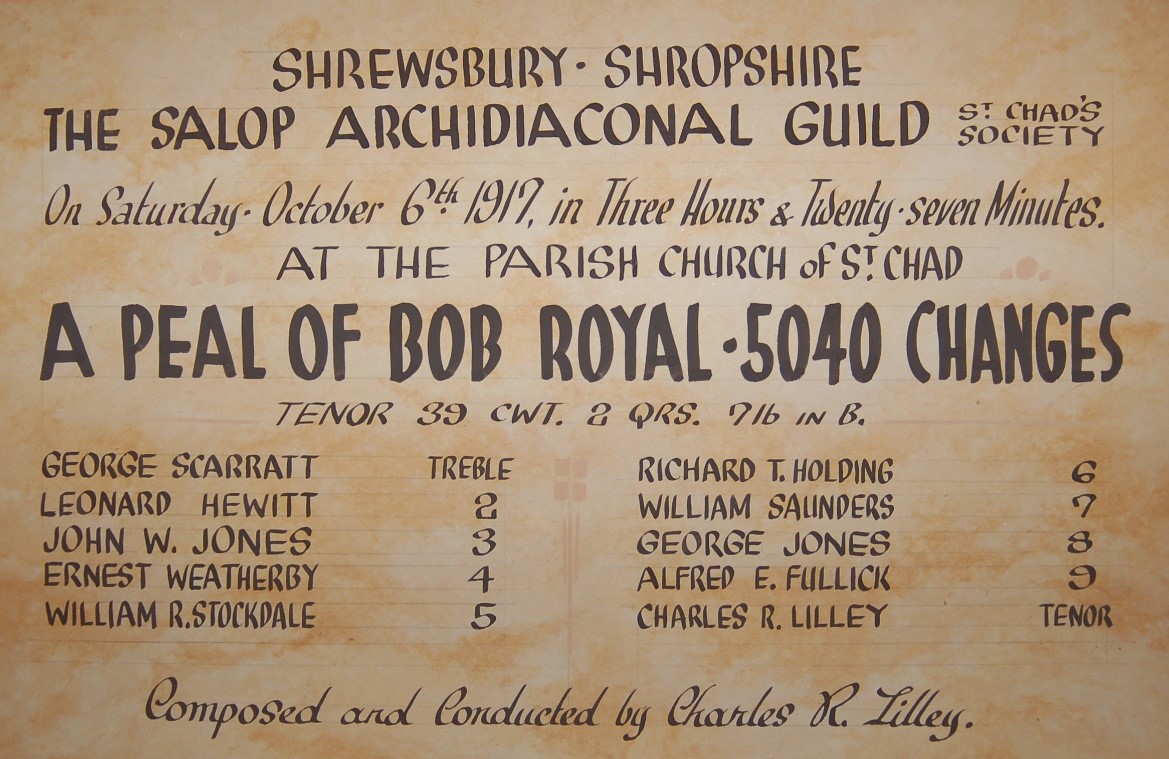 SHREWSBURY · SHROPSHIRE
THE SALOP ARCHIDIACONAL GUILD ST. CHAD'S SOCIETY
On Saturday · October 6th 1917, in Three Hours & Twenty · seven Minutes.
AT THE PARISH CHURCH of ST. CHAD
A PEAL OF BOB ROYAL · 5040 CHANGES
TENOR 39 CWT. 2 QRS. 7lb IN B.
GEORGE SCARRATT TREBLE
LEONARD HEWITT 2
JOHN W. JONES 3
ERNEST WEATHERBY 4
WILLIAM R. STOCKDALE 5
RICHARD T. HOLDING 6
WILLIAM SAUNDERS 7
GEORGE JONES 8
ALFRED E. FULLICK 9
CHARLES R. LILLEY TENOR
Composed and Conducted by Charles R. Lilley.